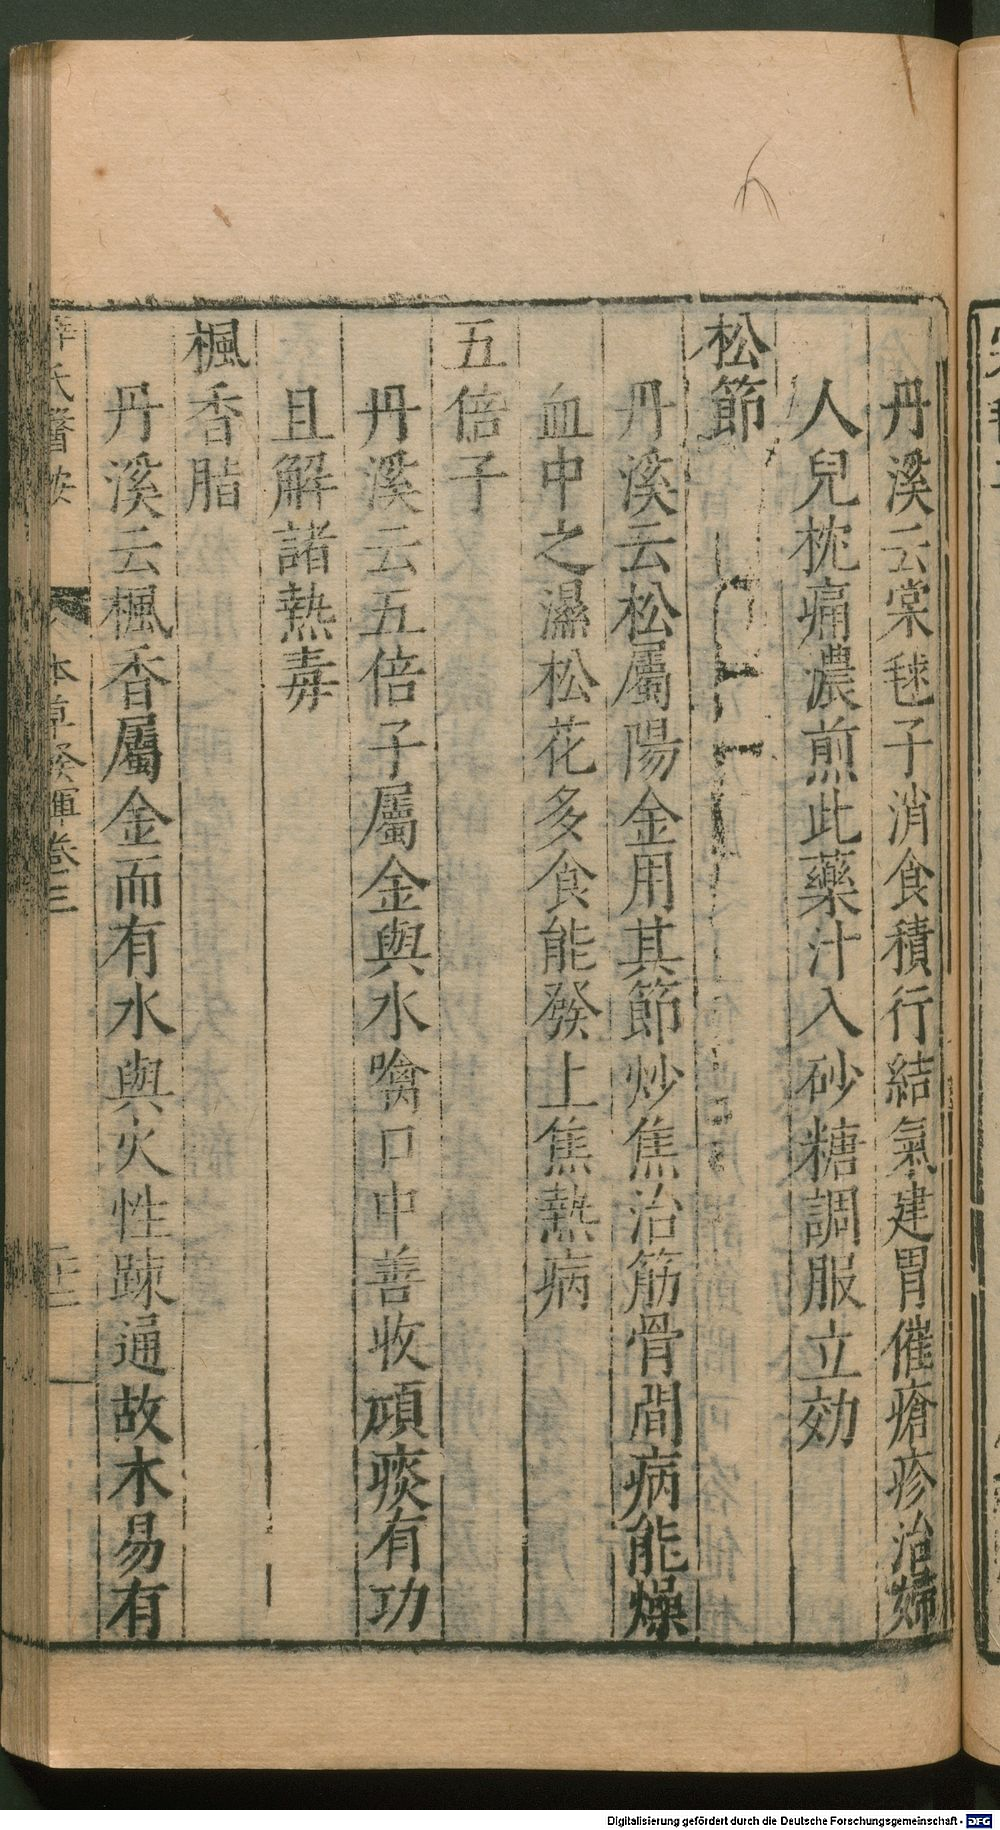 丹溪云棠毬子消食積行結氣建胃催瘡疹治婦
人兒枕痛濃煎此藥汁入砂糖調服立効
松節
丹溪云松屬陽金用其節炒焦治筋骨間病能燥
血中之濕松花多食能發上焦熱病
五倍子
丹溪云五倍子屬金與水噙口中善收頑痰有功
且解諸熱毒
楓香脂
丹溪云楓香屬金而有水與火性疎通故木易有
薛氏醫按
本草發揮卷三
Digitalisierung gefördert durch die Deutsche Forschungsgemeinschaft - DFG